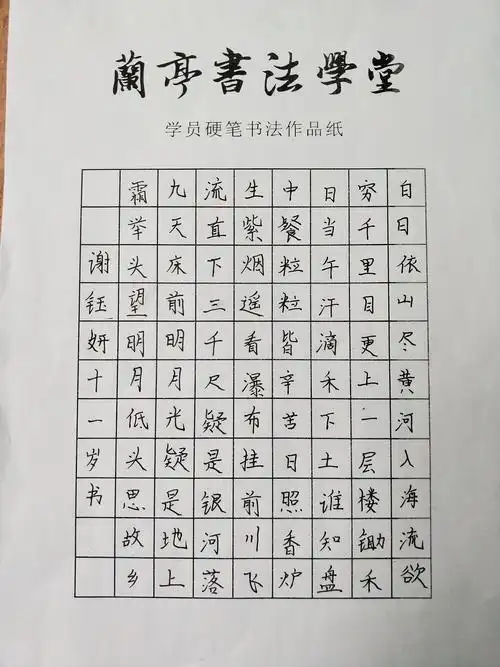 蘭亭書法學堂
学员硬笔书法作品纸
白日依山尽黄河入海流欲
穷千里目更上一层楼锄禾
日当午汗滴禾下土谁知盘
中餐粒粒皆辛苦日照香炉
生紫烟遥看瀑布挂前川飞
流直下三千尺疑是银河落
九天床前明月光疑是地上
霜举头望明月低头思故乡
谢钰妍十一岁书